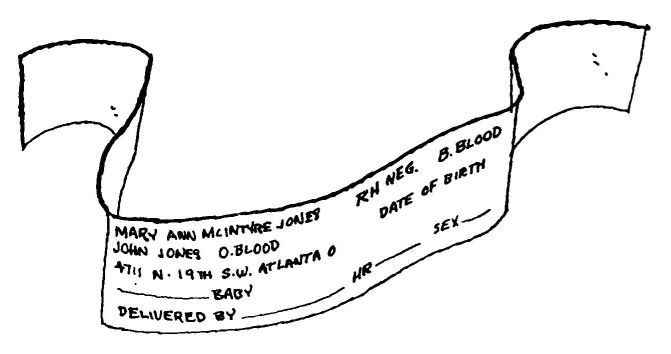 MARY ANN MCINTYRE JONES RH NEG. B.BLOOD
JOHN JONES O.BLOOD DATE OF BIRTH
4711 N. 19TH S.W. ATLANTA O
BABY HR SEX
DELIVERED BY